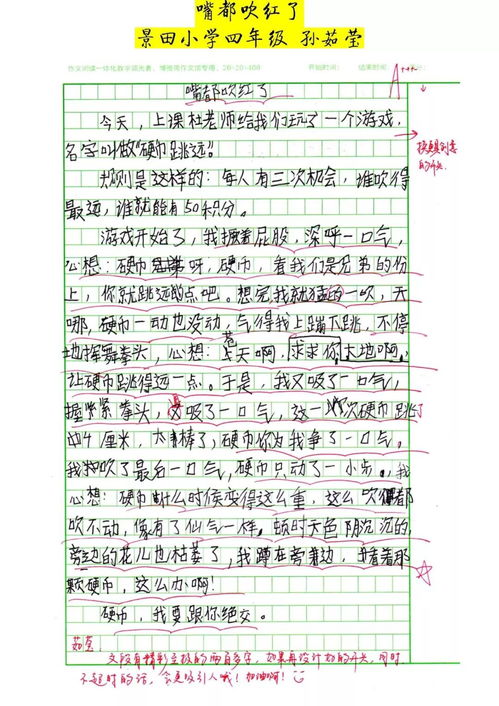 嘴都吹红了
景田小学四年级 孙茹莹
嘴都吹红了
A+++
今天，上课杜老师给我们玩了一个游戏，
名字叫做“硬币跳远”。
规则是这样的：每人有三次机会，谁吹得
最远，谁就能有50积分。
游戏开始了，我撅着屁股，深呼一口气，
心想：硬币呀，硬币，看我们是兄弟的份
上，你就跳远点吧。想完我就猛的一吹，天
哪，硬币一动也没动，气得我上蹿下跳，不停
地挥舞拳头，心想：老天啊，求求你大地啊，
让硬币跳得远一点。于是，我又吸了一口气，
握紧拳头，又吸了一口气，这一次硬币跳了
4厘米，太棒了，硬币你为我争了一口气。
我吹了最后一口气，硬币只动了一小步。我
心想：硬币什么时候变得这么重，这么吹都
吹不动，像有了仙气一样。顿时天色阴沉沉的，
旁边的花儿也枯萎了，我蹲在旁边，看着那
颗硬币，这么办啊！
硬币，我要跟你绝交。
茹莹：
文段有精彩至极的两百多字，如果再设计好的开头，同时
不超时的话，会更吸引人哦！加油啊！